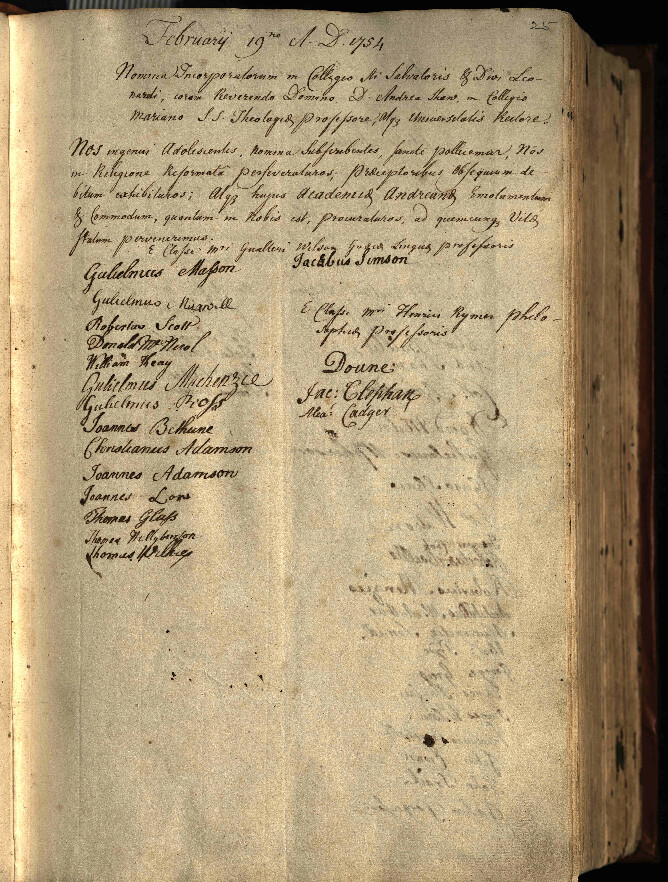 25
Februarij 19no A. D. 1754
Nomina Incorporatorum in Collegio Sti Salvatoris & Divi Leo-
nardi, coram Reverendo Domino, D. Andrea Shaw, in Collegio
Mariano S. S. Theologiæ Professore, Atq Universitatis Rectore.
Nos ingenui Adolescentes, nomina Subscribentes, sancte pollicemur, Nos
in Religione Reformatâ perseveraturos, Præceptoribus Obsequium de-
bitum exhibituros; Atq hujus Academiæ Andreanæ Emolumentum
& Commodum, quantum in Nobis est, procuraturos, ad quemcunq Vitæ
statum pervenerimus.
E Classe Mri Gualteri Wilson Græcæ Linguæ professoris
Gulielmus Masson
Gulielmus Maxwell
Robertus Scott
Donald McNicol
William Keay
Gulielmus Mackenzie
Gulielmus Ross
Joannes Bethune
Christianus Adamson
Joannes Adamson
Joannes Low
Thomas Glass
Thomas
Thomas Wilkie
Jacobus Simson
E Classe Mri Henrici Rymer Philo-
sophiæ Professoris
Doune:
Jac: Clephan
Alexr: Cadger